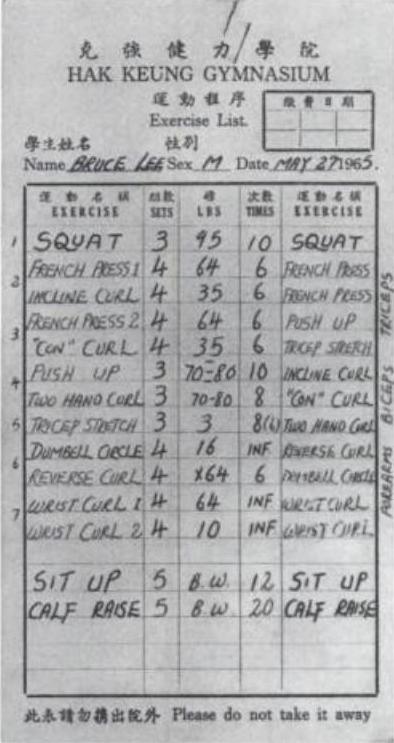 克強健力學院
HAK KEUNG GYMNASIUM
運動程序
Exercise List.
繳費日期
學生姓名 性別
Name BRUCE LEE Sex M Date MAY 27 1965.
運動名稱 組數 磅 次數 運動名稱
EXERCISE SETS LBS TIMES EXERCISE
1 SQUAT 3 95 10 SQUAT
FRENCH PRESS 1 4 64 6 FRENCH PRESS
2
INCLINE CURL 4 35 6 FRENCH PRESS
FRENCH PRESS 2 4 64 6 PUSH UP
3
"CON" CURL 4 35 6 TRICEP STRETCH
PUSH UP 3 70-80 10 INCLINE CURL
4
TWO HAND CURL 3 70-80 8 "CON" CURL
5 TRICEP STRETCH 3 3 8(6) TWO HAND CURL
DUMBELL CIRCLE 4 16 INF REVERSE CURL
6
REVERSE CURL 4 64 6 DUMBELL CIRCLE
WRIST CURL 1 4 64 INF WRIST CURL
7
WRIST CURL 2 4 10 INF WRIST CURL
SIT UP 5 B.W. 12 SIT UP
CALF RAISE 5 B.W. 20 CALF RAISE
FOREARMS BICEPS TRICEPS
此表請勿携出院外 Please do not take it away